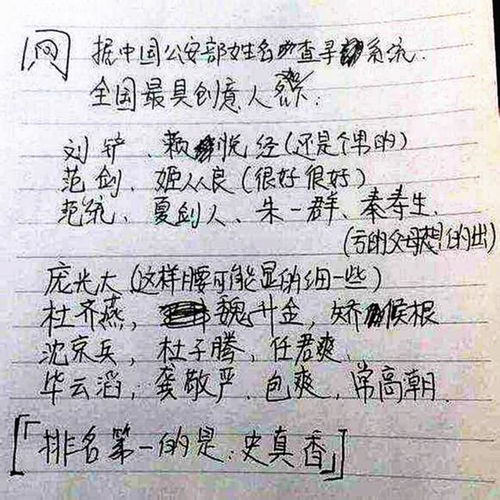 网 据中国公安部姓名查寻系统.
全国最具创意人名:
刘铲、赖悦经(还是个男的)
范剑、姬从良(很好很好)
范统、夏剑人、朱一群、秦寿生.
(亏的父母想的出)
庞光大(这样腰可能显的细一些)
杜齐燕, 魏廾金, 娇候根
沈京兵, 杜子腾, 任君爽.
毕云涛, 龚敬严, 包爽, 常高朝.
[「排名第一的是:史真香」]